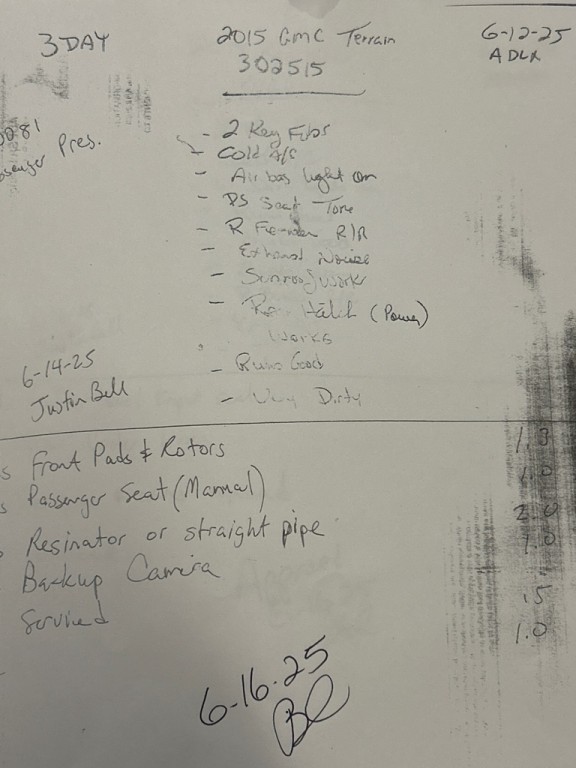 3 DAY
2015 GMC Terrain
302515
6-12-25
ADLR
Pres.
- 2 Key Fobs
- Cold A/C
- Air bag light on
- DS Seat Tore
- R Fender R/R
- Exhaust Noise
- Sunroof Work
- Rr Hatch (Power)
Works
- Runs Good
- Very Dirty
6-14-25
Justin Bell
Front Pads & Rotors 1.3
Passenger Seat (Manual) 1.0
2.0
Resinator or straight pipe 1.0
Backup Camera .5
Serviced 1.0
6-16-25